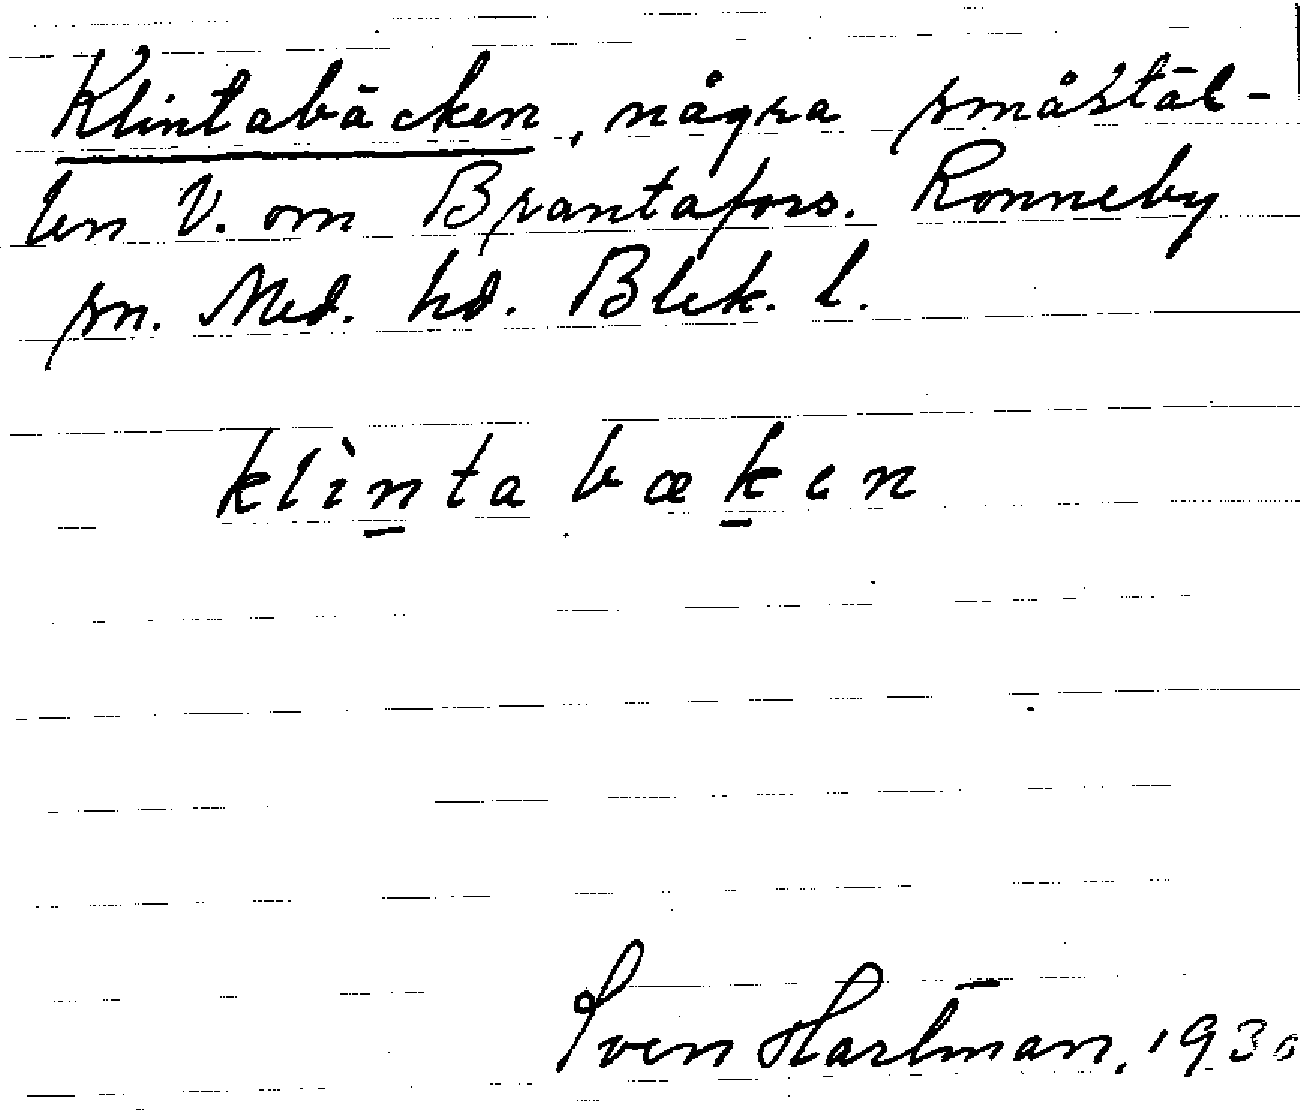 Klintabäcken, några småstäl-
len V. om Brantafors. Ronneby
sn. Med. hd. Blek. l.
klìnta bæken
Sven Hartman, 1930